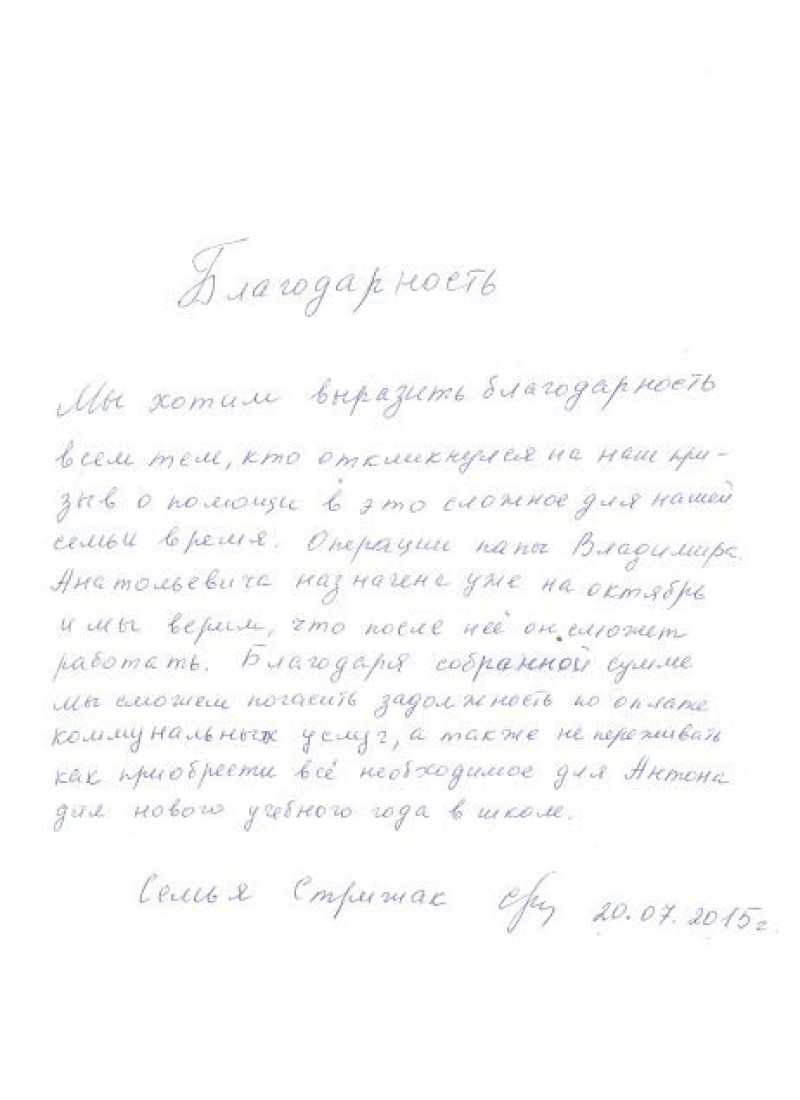 Благодарность
Мы хотим выразить благодарность
всем тем, кто откликнулся на наш при-
зыв о помощи в это сложное для нашей
семьи время. Операции папы Владимира
Анатольевича назначена уже на октябрь
и мы верим, что после неё он сможет
работать. Благодаря собранной сумме
мы сможем погасить задолжность по оплате
коммунальных услуг, а также не переживать
как приобрести всё необходимое для Антона
для нового учебного года в школе.
Семья Стрижак 20.07.2015г.